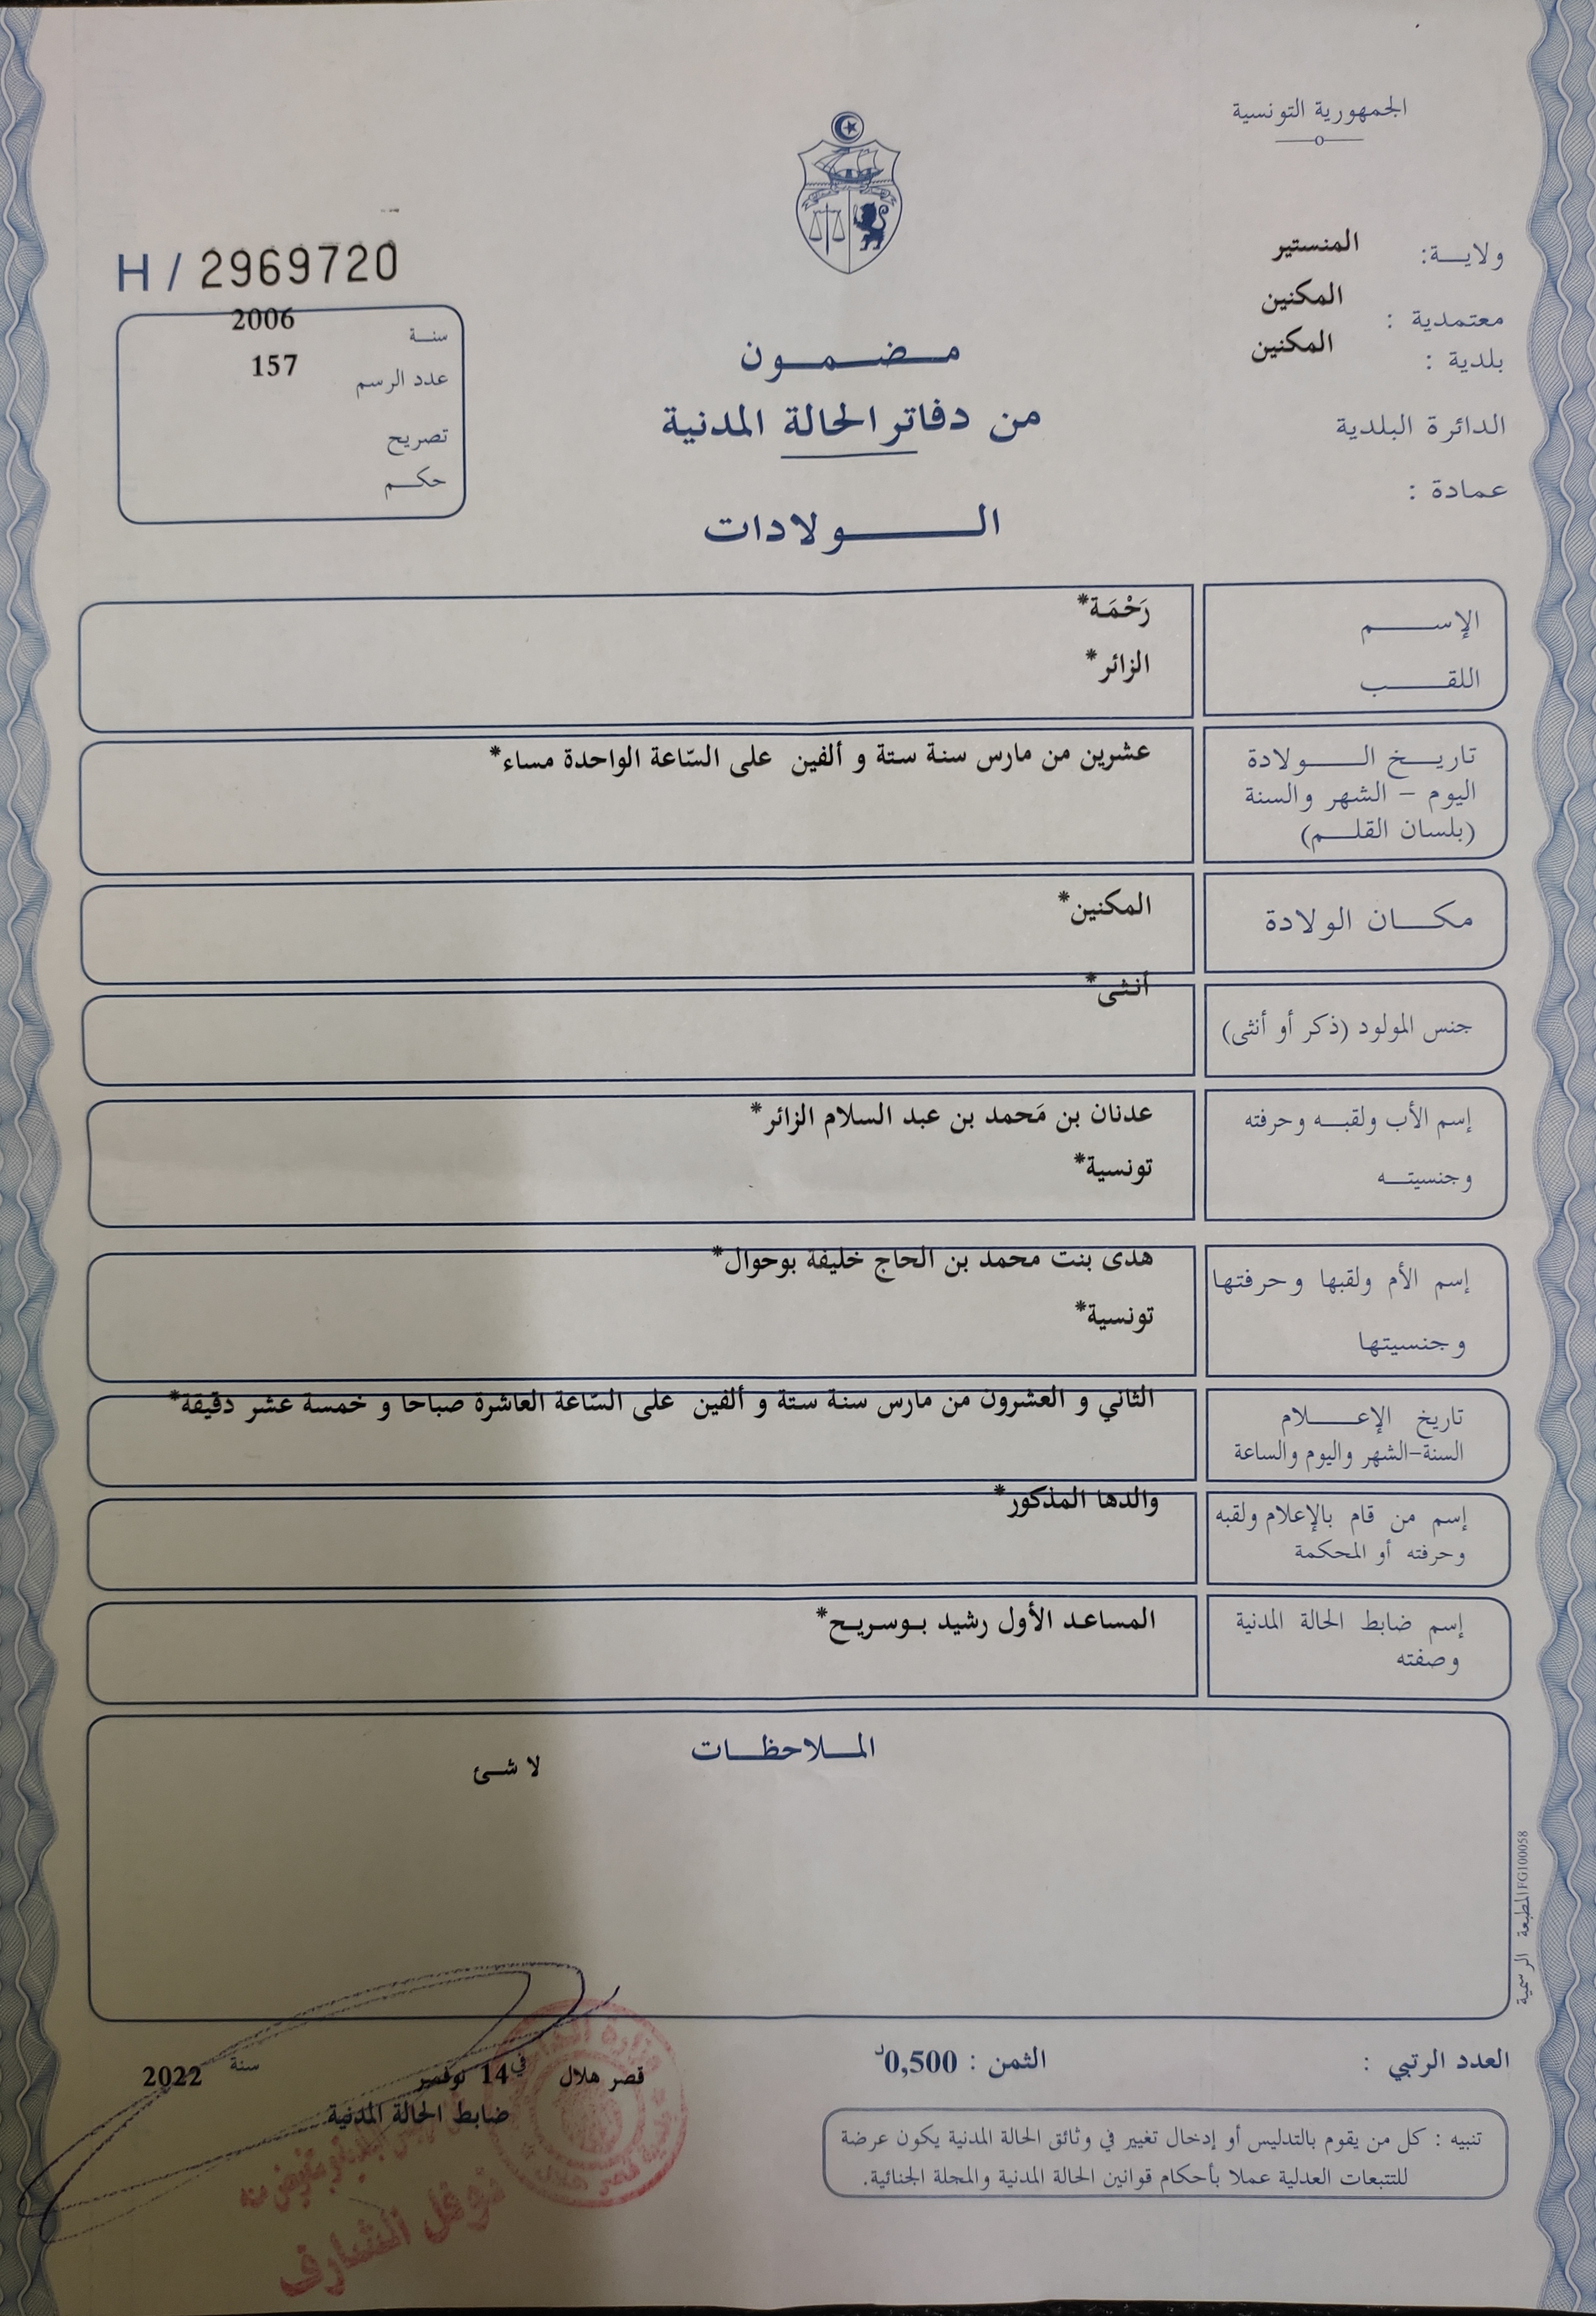 الجمهورية التونسية
ولاية: المنستير
معتمدية : المكنين
بلدية : المكنين
الدائرة البلدية
عمادة :
H / 2969720
سنة 2006
عدد الرسم 157
تصريح
حكم
مضمون
من دفاتر الحالة المدنية
الولادات
الإسم رَحْمَة*
اللقب الزائر*
تاريخ الولادة عشرين من مارس سنة ستة و ألفين على السّاعة الواحدة مساء*
اليوم - الشهر والسنة
(بلسان القلم)
مكان الولادة المكنين*
جنس المولود (ذكر أو أنثى) أنثى*
إسم الأب ولقبه وحرفته عدنان بن مَحمد بن عبد السلام الزائر*
وجنسيته تونسية*
إسم الأم ولقبها وحرفتها هدى بنت محمد بن الحاج خليفة بوحوال*
وجنسيتها تونسية*
تاريخ الإعلام الثاني و العشرون من مارس سنة ستة و ألفين على السّاعة العاشرة صباحا و خمسة عشر دقيقة*
السنة-الشهر واليوم والساعة
إسم من قام بالإعلام ولقبه والدها المذكور*
وحرفته أو المحكمة
إسم ضابط الحالة المدنية المساعد الأول رشيد بوسريح*
وصفته
الملاحظات
لا شئ
المطبعة الرسمية FG100058
العدد الرتبي :
الثمن : 0,500د
قصر هلال في 14 نوفمبر سنة 2022
ضابط الحالة المدنية
نوفل الشارف
تنبيه : كل من يقوم بالتدليس أو إدخال تغيير في وثائق الحالة المدنية يكون عرضة
للتتبعات العدلية عملا بأحكام قوانين الحالة المدنية والمجلة الجنائية.